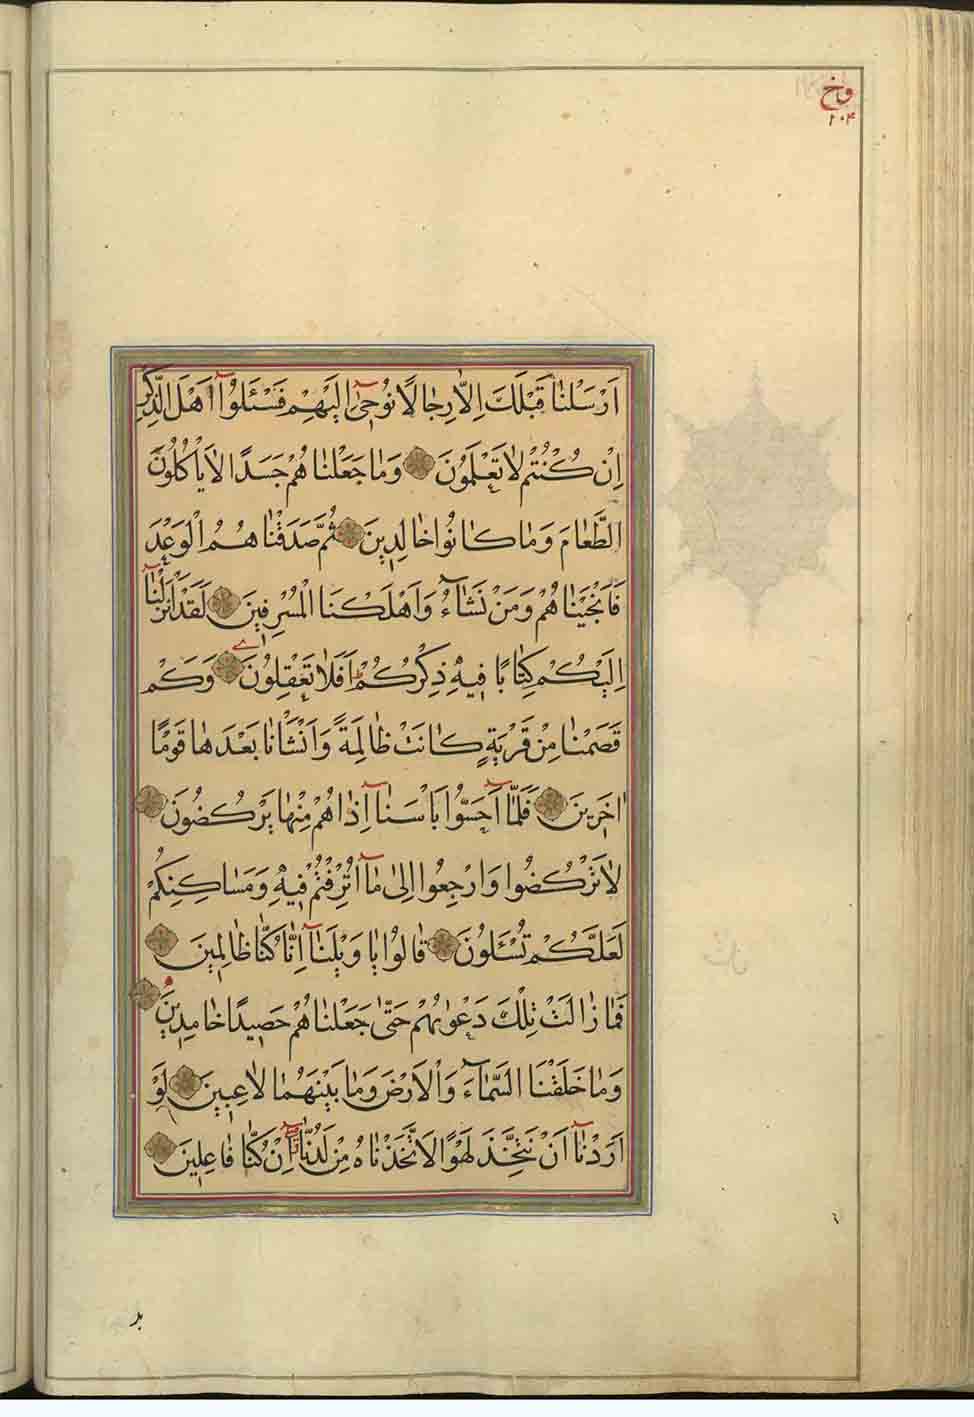 وخ
٢٠٤
اَرْسَلْنٰا قَبْلَكَ اِلاّٰ رِجٰالًا نُوحٖىٓ اِلَيْهِمْ فَسْـَٔلُوٓا اَهْلَ الذِّكْرِ
اِنْ كُنْتُمْ لاٰ تَعْلَمُونَ وَمٰا جَعَلْنٰاهُمْ جَسَدًا لاٰ يَاْكُلُونَ
الطَّعٰامَ وَمٰا كٰانُوا خٰالِدِينَ ثُمَّ صَدَقْنٰاهُمُ الْوَعْدَ
فَاَنْجَيْنٰاهُمْ وَمَنْ نَشٰٓاءُ وَاَهْلَكْنَا الْمُسْرِفِينَ لَقَدْ اَنْزَلْنٰٓا
اِلَيْكُمْ كِتٰابًا فِيهِ ذِكْرُكُمْ اَفَلاٰ تَعْقِلُونَ وَكَمْ
قَصَمْنٰا مِنْ قَرْيَةٍ كٰانَتْ ظٰالِمَةً وَاَنْشَاْنٰا بَعْدَهٰا قَوْمًا
اٰخَرِينَ فَلَمّٰٓا اَحَسُّوا بَاْسَنٰٓا اِذٰا هُمْ مِنْهٰا يَرْكُضُونَ
لاٰ تَرْكُضُوا وَارْجِعُوا اِلىٰ مٰٓا اُتْرِفْتُمْ فِيهِ وَمَسٰاكِنِكُمْ
لَعَلَّكُمْ تُسْـَٔلُونَ قٰالُوا يٰا وَيْلَنٰٓا اِنّٰا كُنّٰا ظٰالِمِينَ
فَمٰا زٰالَتْ تِلْكَ دَعْوٰيهُمْ حَتّٰى جَعَلْنٰاهُمْ حَصِيدًا خٰامِدِينَ
وَمٰا خَلَقْنَا السَّمٰٓاءَ وَالْاَرْضَ وَمٰا بَيْنَهُمٰا لاٰعِبِينَ لَوْ
اَرَدْنٰٓا اَنْ نَتَّخِذَ لَهْوًا لَاتَّخَذْنٰاهُ مِنْ لَدُنّٰٓا اِنْ كُنّٰا فٰاعِلِينَ